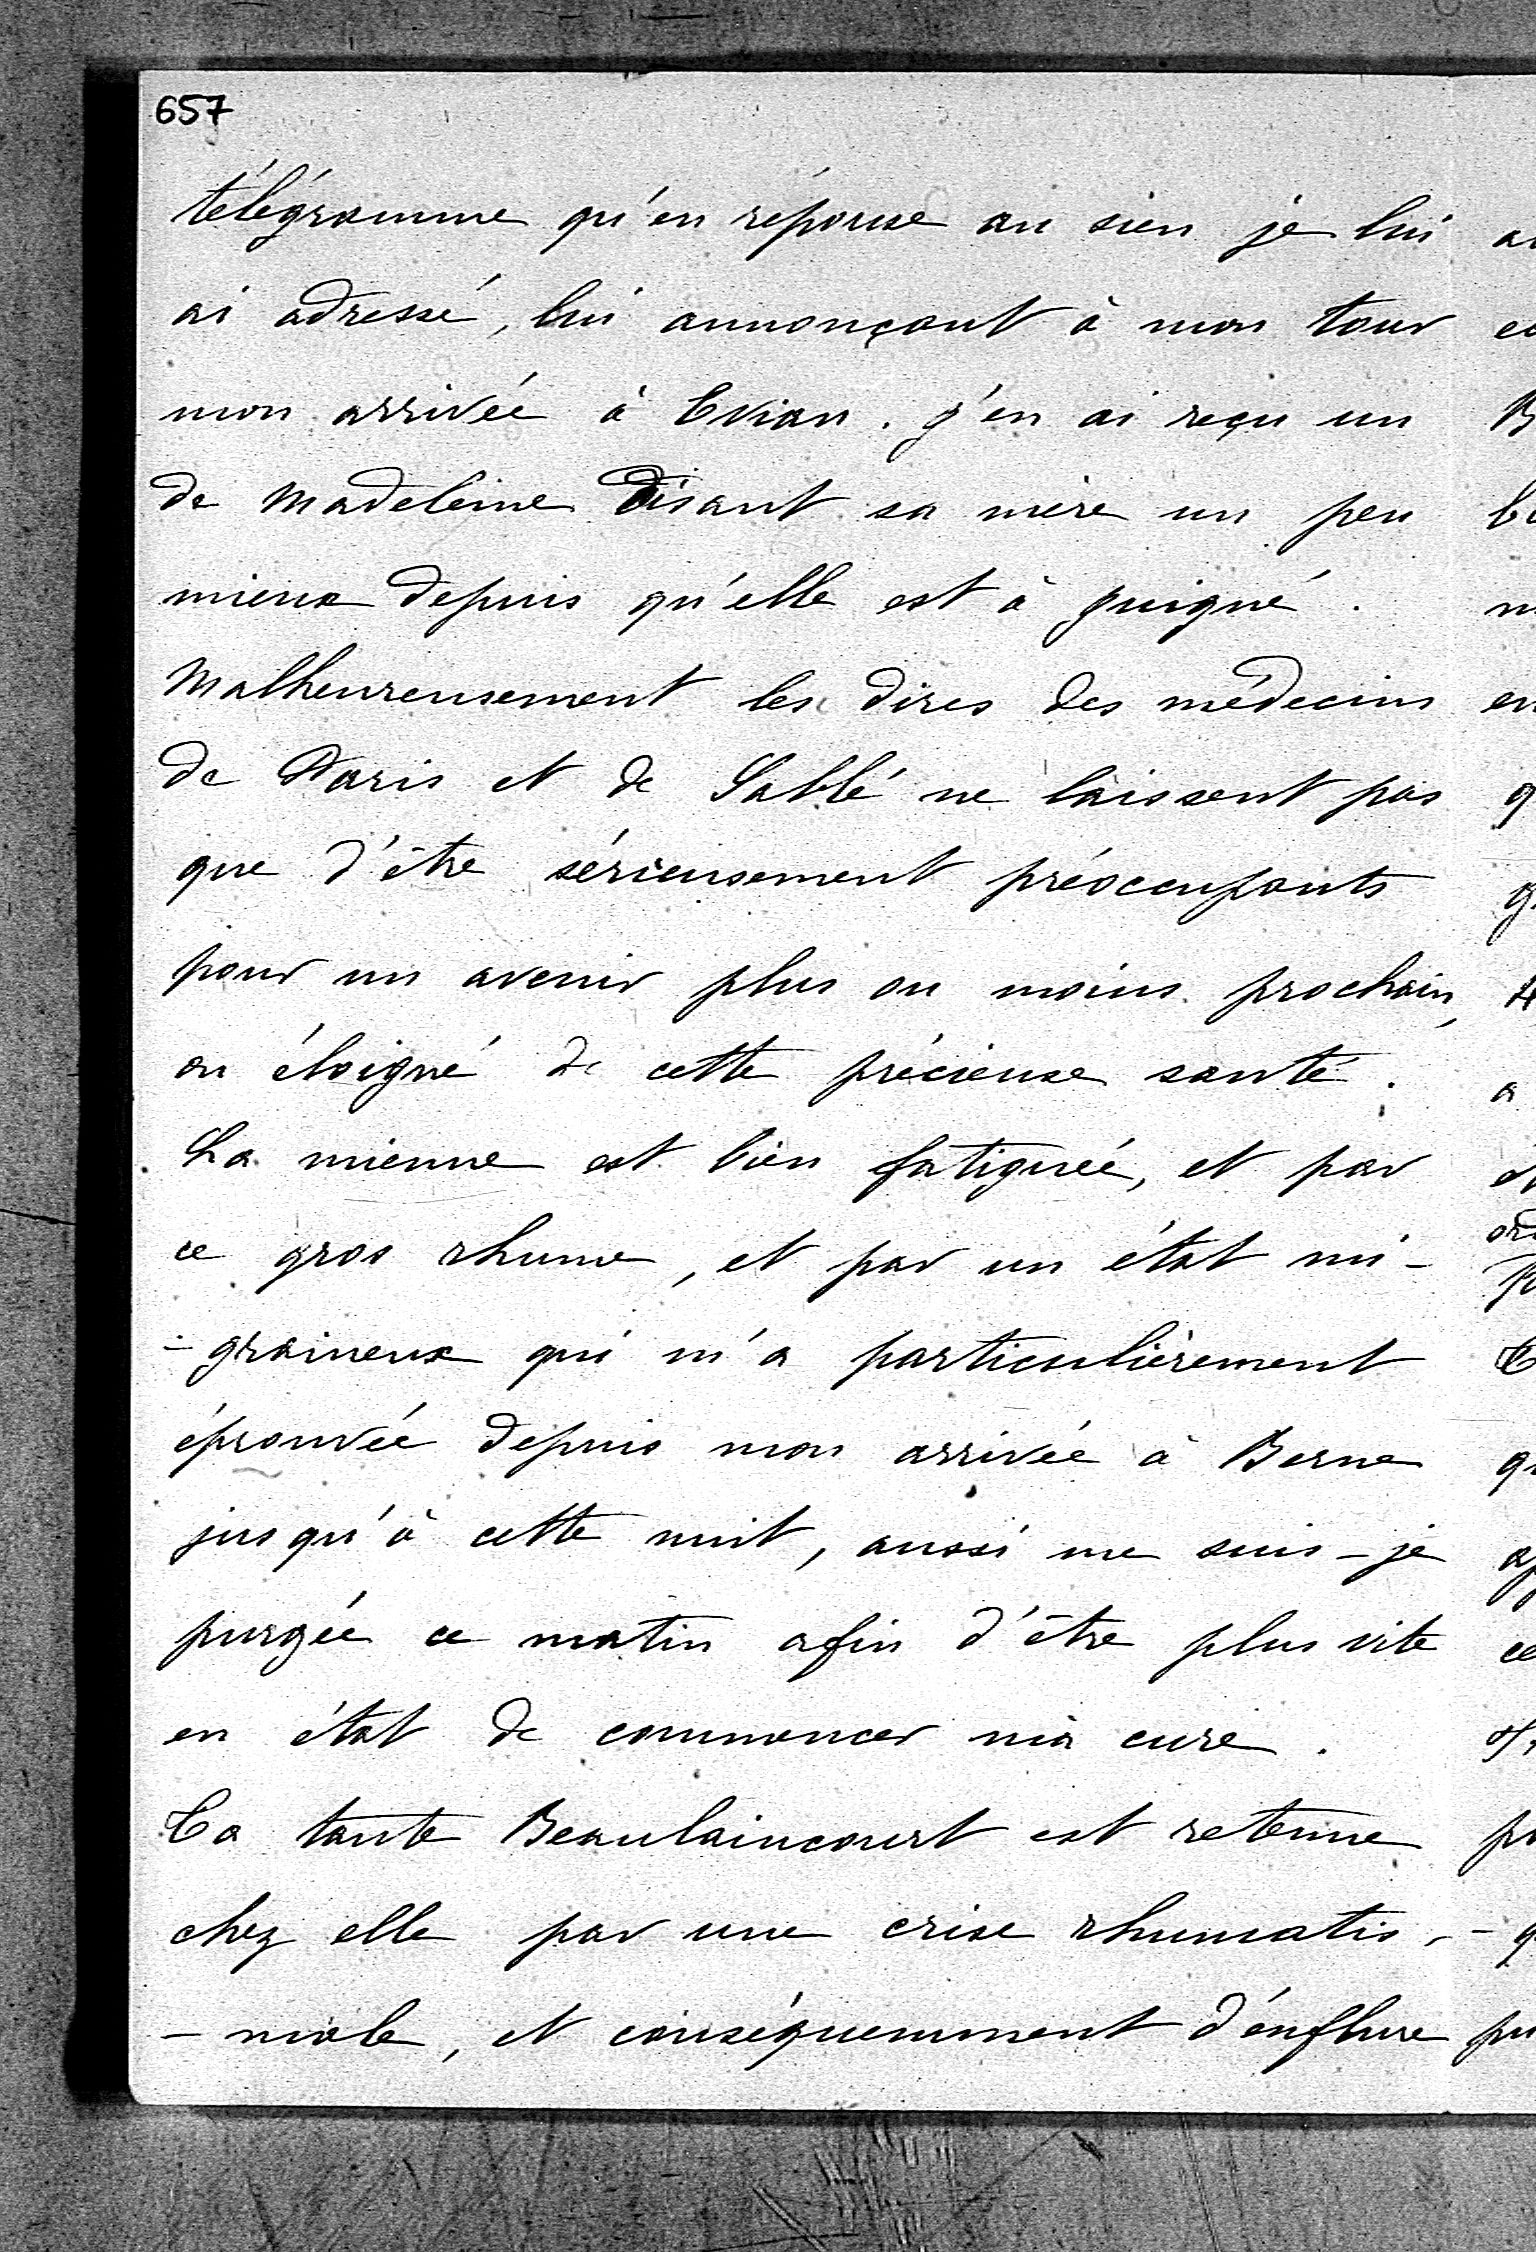 657
télégramme qu'en réponse au sien je lui
ai adressé, lui annonçant à mon tour
mon arrivée à Evian. J'en ai reçu un
de Madeleine disant sa mère un peu
mieux depuis qu'elle est à Juigné.
Malheureusement les dires des médecins
de Paris et de Sablé ne laissent pas
que d'être sérieusement préoccupants
pour un avenir plus ou moins prochain,
ou éloigné de cette précieuse santé.
La mienne est bien fatiguée, et par
ce gros rhume, et par un état mi-
-graineux qui m'a particulièrement
éprouvée depuis mon arrivée à Berne
jusqu'à cette nuit, aussi me suis-je
purgée ce matin afin d'être plus vite
en état de commencer ma cure.
Ta tante Beaulaincourt est retenue
chez elle par une crise rhumatis-
-male, et conséquemment d'enflure